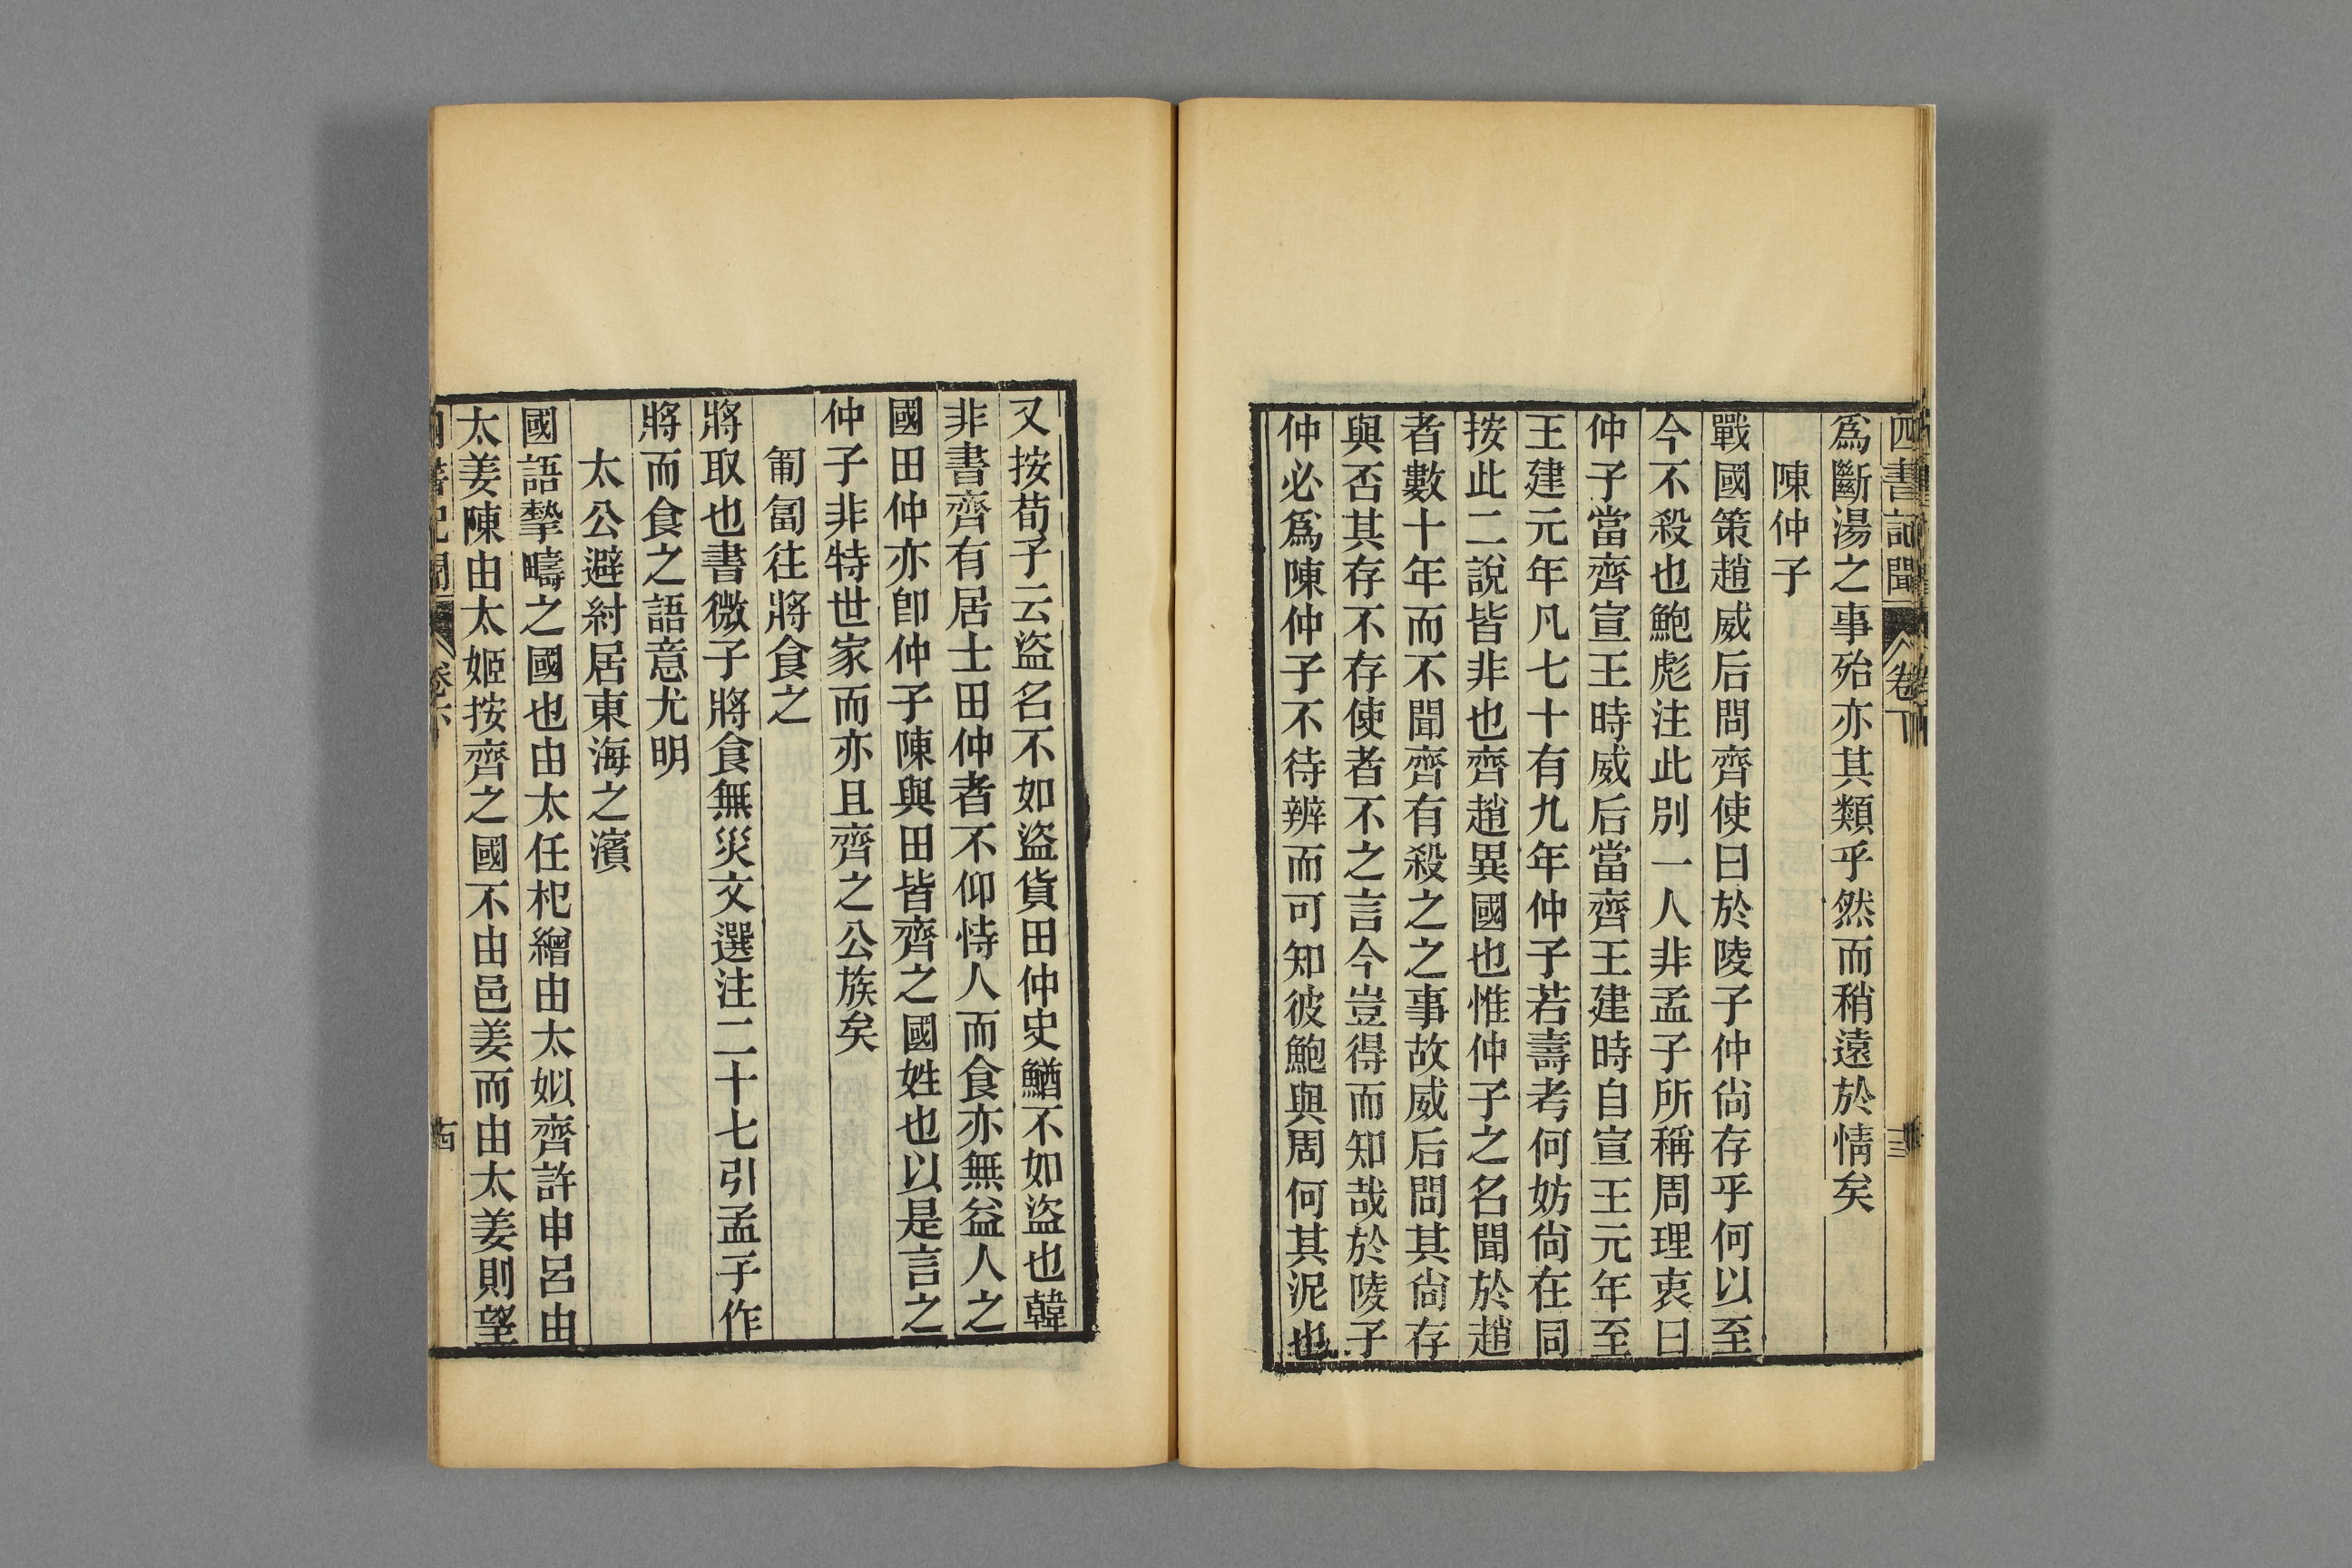 四書記聞 卷
爲斷湯之事殆亦其類乎然而稍遠於情矣
陳仲子
戰國策趙威后問齊使曰於陵子仲尙存乎何以至
今不殺也鮑彪注此別一人非孟子所稱周理衷曰
仲子當齊宣王時威后當齊王建時自宣王元年至
王建元年凡七十有九年仲子若壽考何妨尙在同
按此二說皆非也齊趙異國也惟仲子之名聞於趙
者數十年而不聞齊有殺之之事故威后問其尙存
與否其存不存使者不之言今豈得而知哉於陵子
仲必爲陳仲子不待辨而可知彼鮑與周何其泥也
又按荀子云盜名不如盜貨田仲史鰌不如盜也韓
非書齊有居士田仲者不仰恃人而食亦無益人之
國田仲亦卽仲子陳與田皆齊之國姓也以是言之
仲子非特世家而亦且齊之公族矣
匍匐往將食之
將取也書微子將食無災文選注二十七引孟子作
將而食之語意尤明
太公避紂居東海之濱
國語摯疇之國也由太任杞繒由太姒齊許申呂由
太姜陳由太姬按齊之國不由邑姜而由太姜則望
卷六